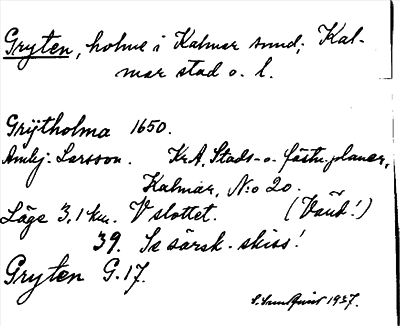 Gryten, holme i Kalmar sund; Kal-
mar stad o. l.
Grÿtholma 1650.
Ambj. Larsson. Kr.A. Stads- o. fästn.planer,
Kalmar, N:o 20.
Läge 3,1 km. V slottet. (Vänd!)
39. Se särsk. skiss!
Gryten G.17.
S. Sundquist 1937.